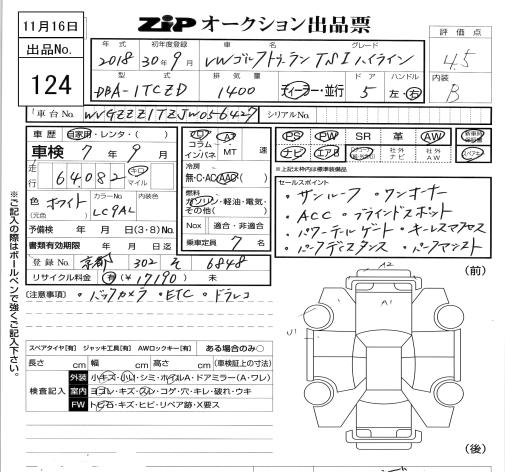 11月16日
ZiP オークション出品票
評価点
4.5
内装
B
出品No.
124
年式 初年度登録 車名 グレード
2018 30年9月 VWゴルフトゥーラン TSI ハイライン
型式 排気量 ドア ハンドル
DBA-1TCZD 1400 ディーラー・並行 5 左・右
車台No. WVGZZZ1TZJW056427 シリアルNo.
車歴 自家用・レンタ・( )
車検 7年9月
走行 64,082 キロ マイル
色 ホワイト カラーNo. LC9AL 内装色
(元色)
予備検 年 月 日(3・8)No.
書類有効期限 年 月 日迄
登録No. 京都 302 そ 6848
リサイクル料金 有(¥17190) 未
フロア コラム インパネ AT ・MT 速
冷房
無・C・AC・AAC
燃料
ガソリン・軽油・電気・その他( )
Nox 適合・非適合
乗車定員 7 名
PS PW SR 革 AW 新車時保証書
ナビ エアB 社外ナビ 社外AW 取説
※上記太枠内は標準装備品
セールスポイント
・サンルーフ ・ワンオーナー
・ACC ・ブラインドスポット
・パワーテールゲート ・キーレスアクセス
・パークディスタンス ・パークアシスト
(注意事項) ・バックカメラ ・ETC ・ドラレコ
(前)
A2
A1
U1
(後)
スペアタイヤ[有] ジャッキ工具[有] AWロックキー[有] ある場合のみ○
長さ cm 幅 cm 高さ cm (車検証上の寸法)
検査記入
外装 小キズ・小凹・シミ・ホイルA・ドアミラー(A・ワレ)
室内 ヨゴレ・キズ・スレ・コゲ・穴・キレ・破れ・ウキ
FW トビ石・キズ・ヒビ・リペア跡・X要ス
※ご記入の際はボールペンで強くご記入下さい。